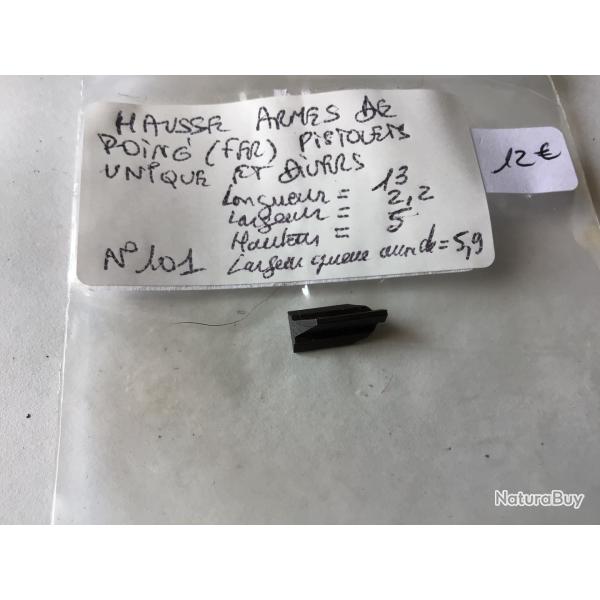 HAUSSE ARMES DE
POING (FER) PISTOLETS
UNIQUE ET DIVERS
Longueur = 13
Largeur = 2,2
Hauteur = 5
N° 101 Largeur queue = 5,9
12 €
NaturaBuy